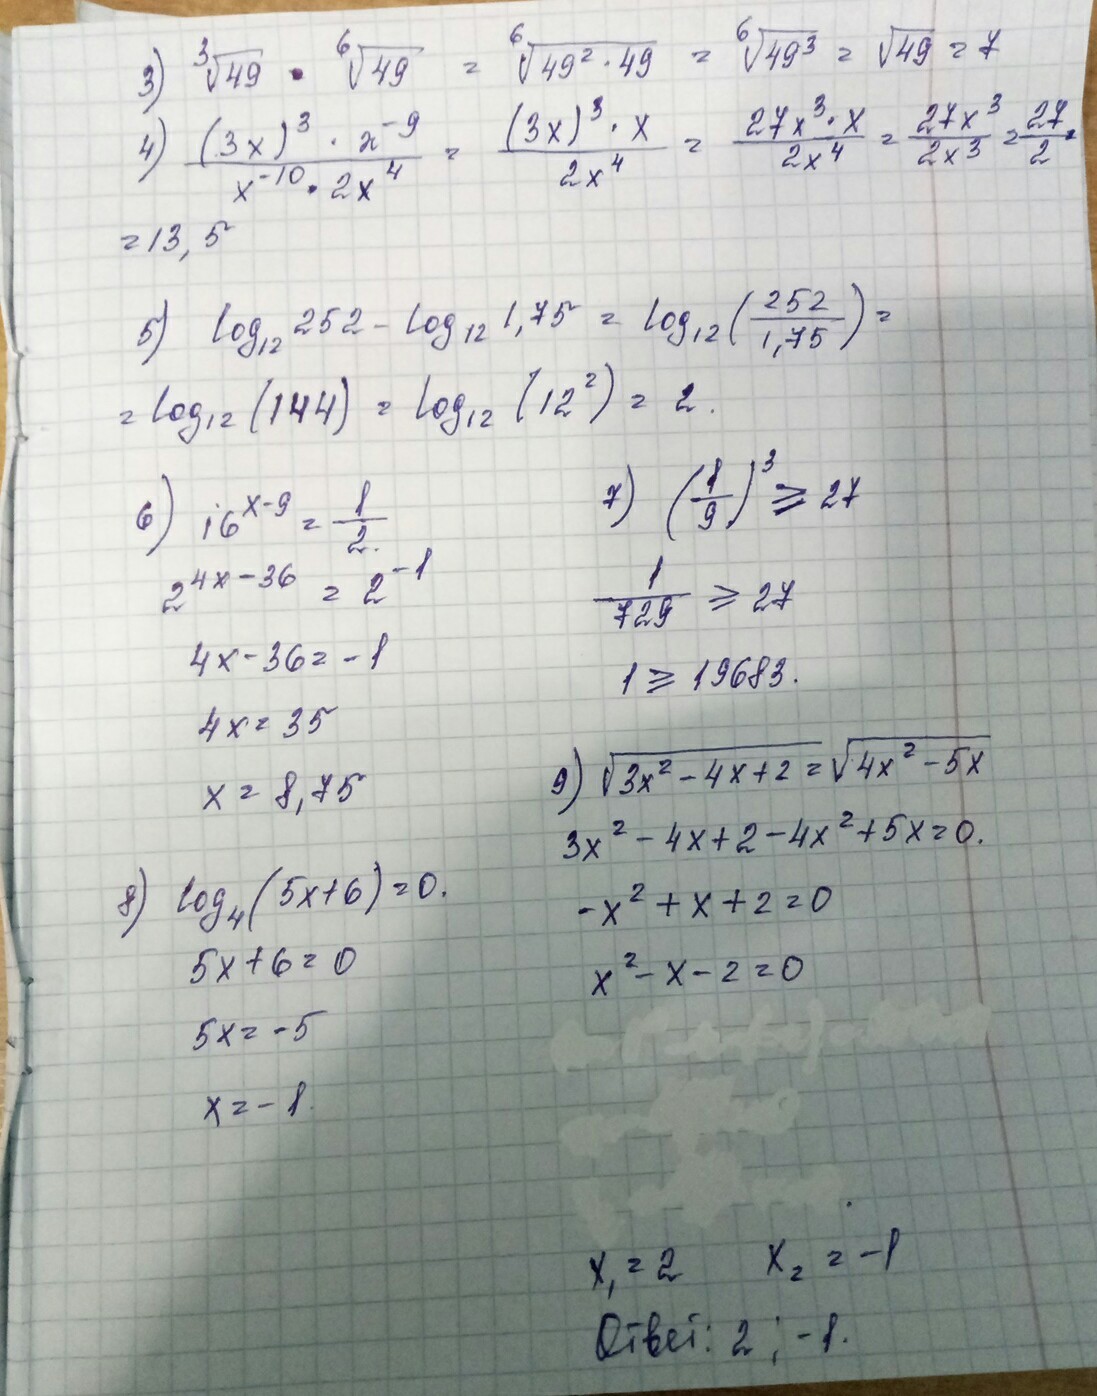 3) ∛49 · ⁶√49 = ⁶√(49² · 49) = ⁶√49³ = √49 = 7
4) (3x)³ · x⁻⁹ / x⁻¹⁰ · 2x⁴ = (3x)³ · x / 2x⁴ = 27x³ · x / 2x⁴ = 27x³ / 2x³ = 27 / 2 =
= 13,5
5) log₁₂ 252 - log₁₂ 1,75 = log₁₂ (252 / 1,75) =
= log₁₂ (144) = log₁₂ (12²) = 2.
6) 16ˣ⁻⁹ = 1/2
2⁴ˣ⁻³⁶ = 2⁻¹
4x - 36 = -1
4x = 35
x = 8,75
7) (1/9)³ ⩾ 27
1/729 ⩾ 27
1 ⩾ 19683.
8) log₄ (5x+6) = 0.
5x + 6 = 0
5x = -5
x = -1.
9) √(3x² - 4x + 2) = √(4x² - 5x)
3x² - 4x + 2 - 4x² + 5x = 0.
-x² + x + 2 = 0
x² - x - 2 = 0
x₁ = 2 x₂ = -1
Ответ: 2 ; -1.